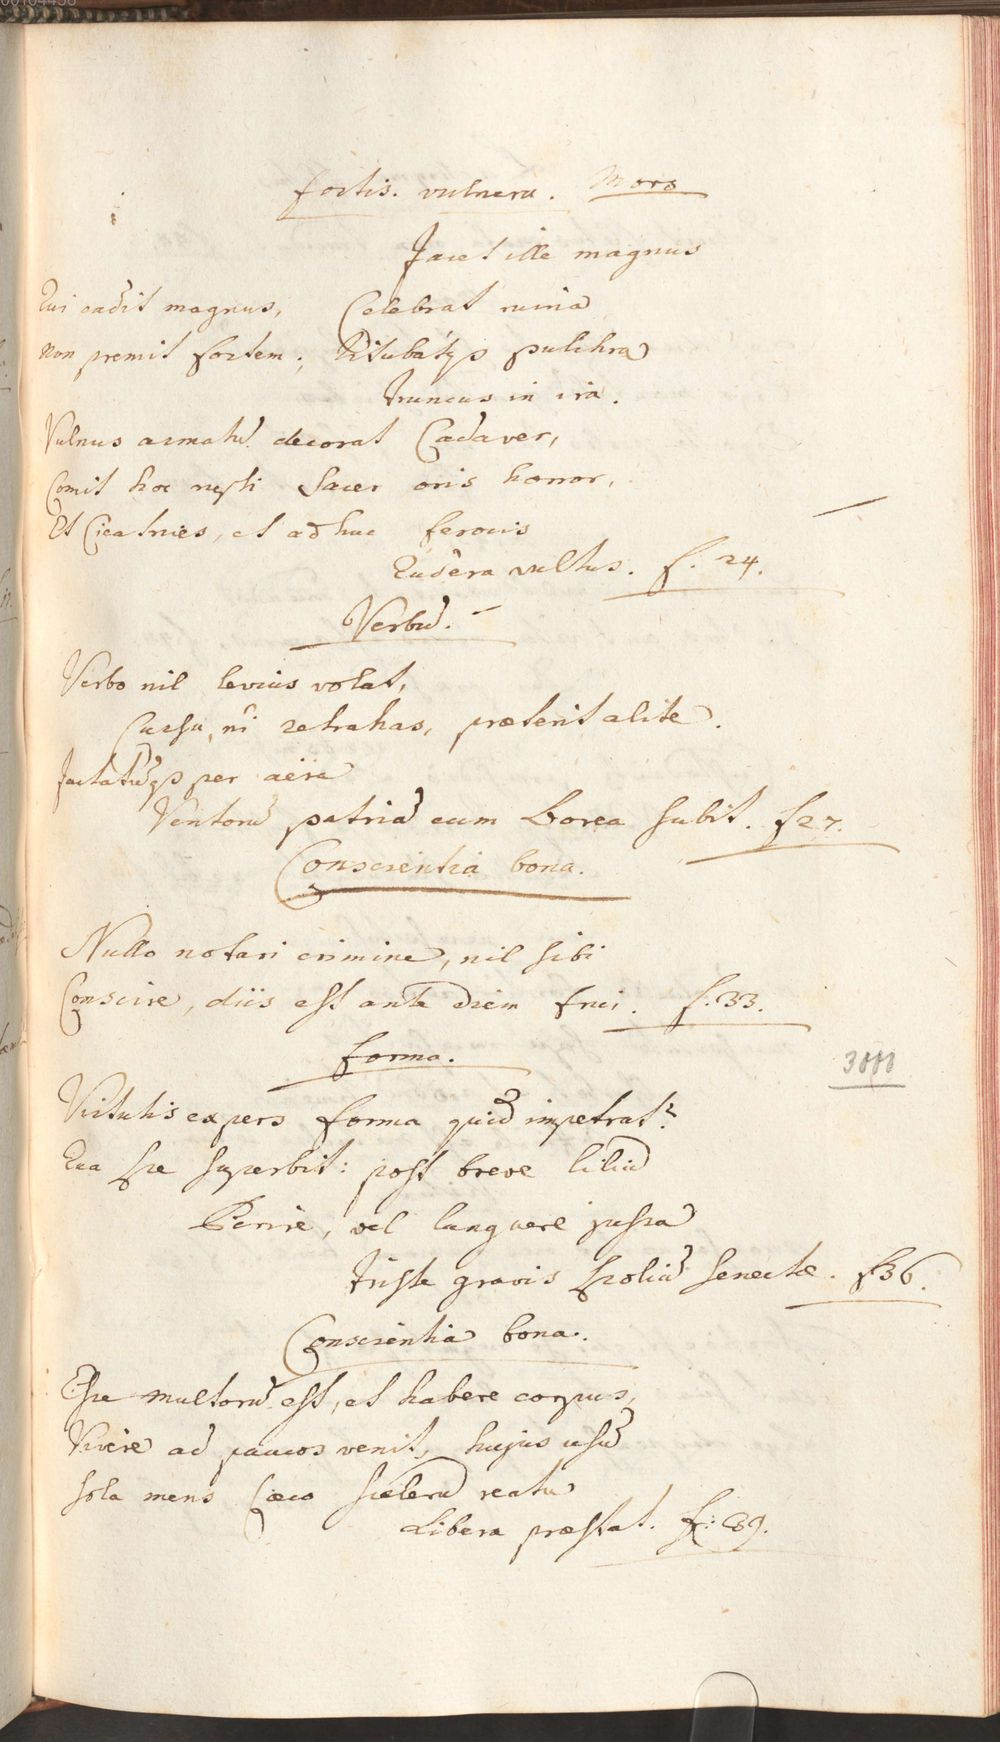 fortis. vulnera. Mors
Jacet ille magnus
Qui cadit magnus, Celebrat ruina
Non premit fortem; titubatq3 pulchra
truncus in ira.
Vulnus armatū decorat Cadaver,
Comit hoc sacer oris horror,
Et Cicatrices, et adhuc ferocis
vultus. f. 24.
Verbū.
Verbo nil levius volat,
Cursu, nī retrahas, præterit alite.
Jactatūq3 per aëra
Ventorū patriā cum Borea subit. f27.
Conscientia bona.
Nullo notari crimine, nil sibi
Conscire, diis est ante diem frui. f. 33.
forma.
Virtutis expers forma quid impetrat?
Qua spe superbit: post breve liliū
Perire, vel languere jussa
Triste gravis spoliū senectæ. f36.
Conscientia bona.
Esse multorū est, et habere corpus,
Vivere ad paucos venit, hujus usū
sola mens cæco scelerū reatu
Libera præstat. f: 39.